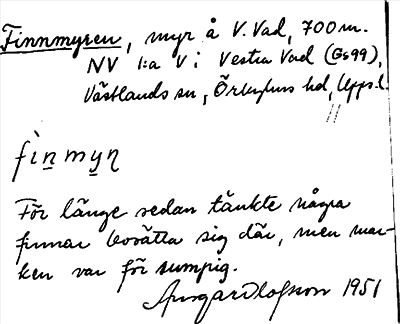 Finnmyren, myr å V. Vad, 700 m.
NV l:a V i Vestra Vad (Gs 99),
Västlands sn, Örbyhus hd, Upps.l.
fìn myn
För länge sedan tänkte några
finnar bosätta sig där, men mar-
ken var för sumpig.
Ansgar Olofsson 1951